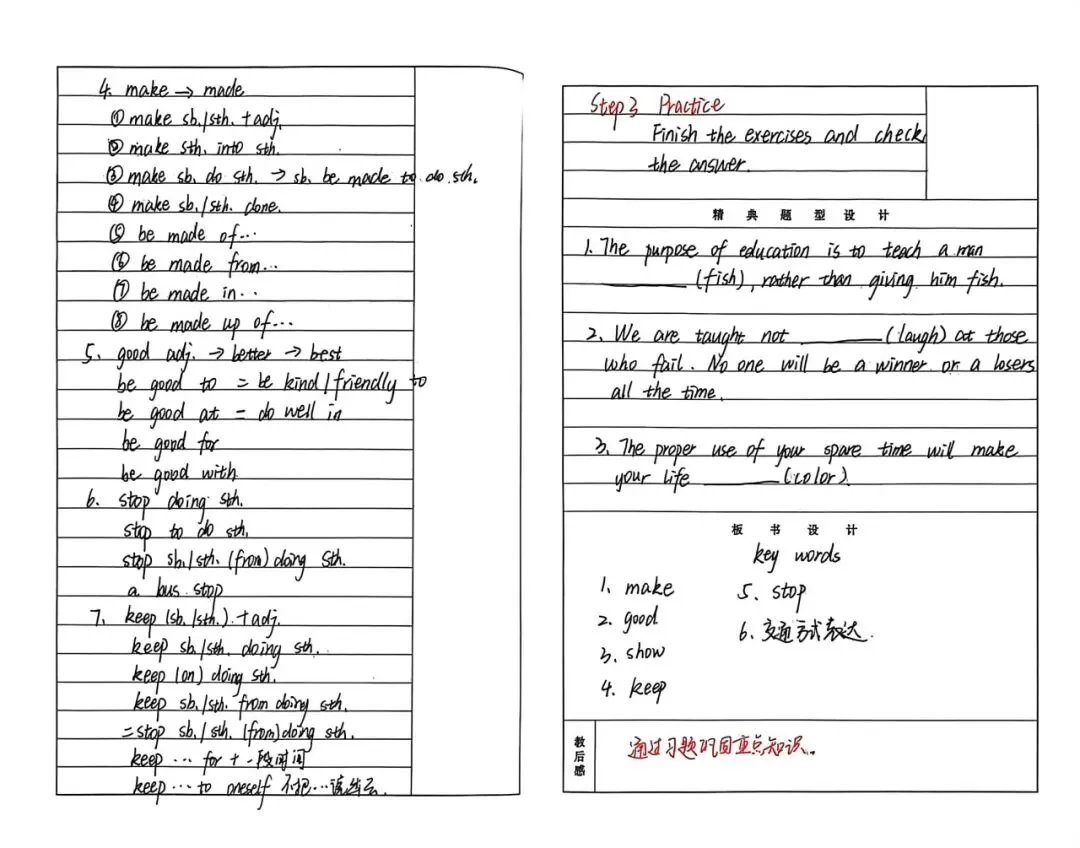 4. make → made
① make sb./sth. + adj.
② make sth. into sth.
③ make sb. do sth. → sb. be made to do sth.
④ make sb./sth. done.
⑤ be made of…
⑥ be made from…
⑦ be made in…
⑧ be made up of…
5. good adj. → better → best
be good to = be kind/friendly to
be good at = do well in
be good for
be good with
6. stop doing sth.
stop to do sth.
stop sb./sth. (from) doing sth.
a bus stop
7. keep (sb./sth.) + adj.
keep sb./sth. doing sth.
keep (on) doing sth.
keep sb./sth. from doing sth.
= stop sb./sth. (from) doing sth.
keep … for + 一段时间
keep … to oneself 不把…
Step 3 Practice
Finish the exercises and check
the answer.
精典题型设计
1. The purpose of education is to teach a man
______ (fish), rather than giving him fish.
2. We are taught not ______ (laugh) at those
who fail. No one will be a winner or a losers
all the time.
3. The proper use of your spare time will make
your life ______ (color).
板书设计
key words
1. make
2. good
3. show
4. keep
5. stop
6. 交通方式表达.
教后感
通过习题巩固重点知识.